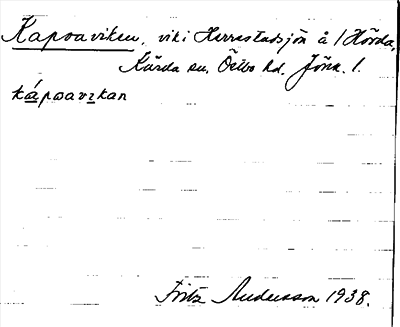 Kapoaviken, vik i Herrestadsjön å / Hörda,
Kärda sn. Östbo hd. Jönk. l.
kápoavɩkan
Fritz Andersson 1938.